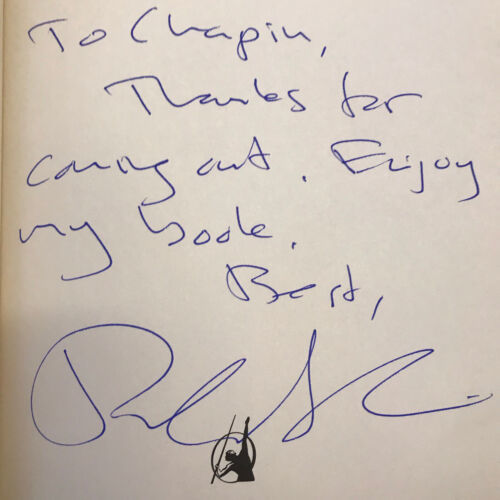 To Chapin,
Thanks for
coming out. Enjoy
my book.
Best,